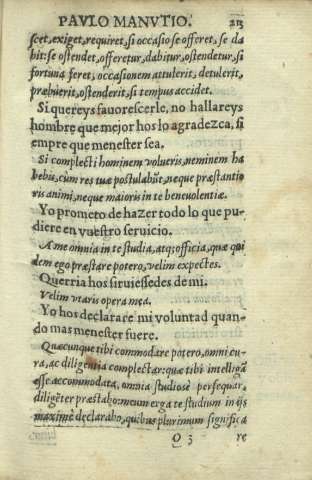 PAVLO MANVTIO. 213
scet, exiget, requiret, si occasio se offeret, se da
bit: se ostendet, offeretur, dabitur, ostendetur, si
fortuna feret, occasionem attulerit, detulerit,
præbuerit, ostenderit, si tempus accidet.
Si quereys fauorescerle, no hallareys
hombre que mejor hos lo agradezca, si
empre que menester sea.
Si complecti hominem volueris, neminem ha
bebis, cùm res tuæ postulabũt, neque præstantio
ris animi, neque maioris in te beneuolentiæ.
Yo prometo de hazer todo lo que pu-
diere en vuestro seruicio.
A me omnia in te studia, atq; officia, quæ qui
dem ego præstare potero, velim expectes.
Querria hos siruiessedes de mi.
Velim vtaris opera mea.
Yo hos declarare mi voluntad quan-
do mas menester fuere.
Quæcunque tibi commodare potero, omni cu-
ra, ac diligentia complectar: quæ tibi intelligã
esse accommodata, omnia studiosè persequar,
diligẽter præstabo: meum erga te studium in ijs
maximè declarabo, quibus plurimum significa
O 3 re